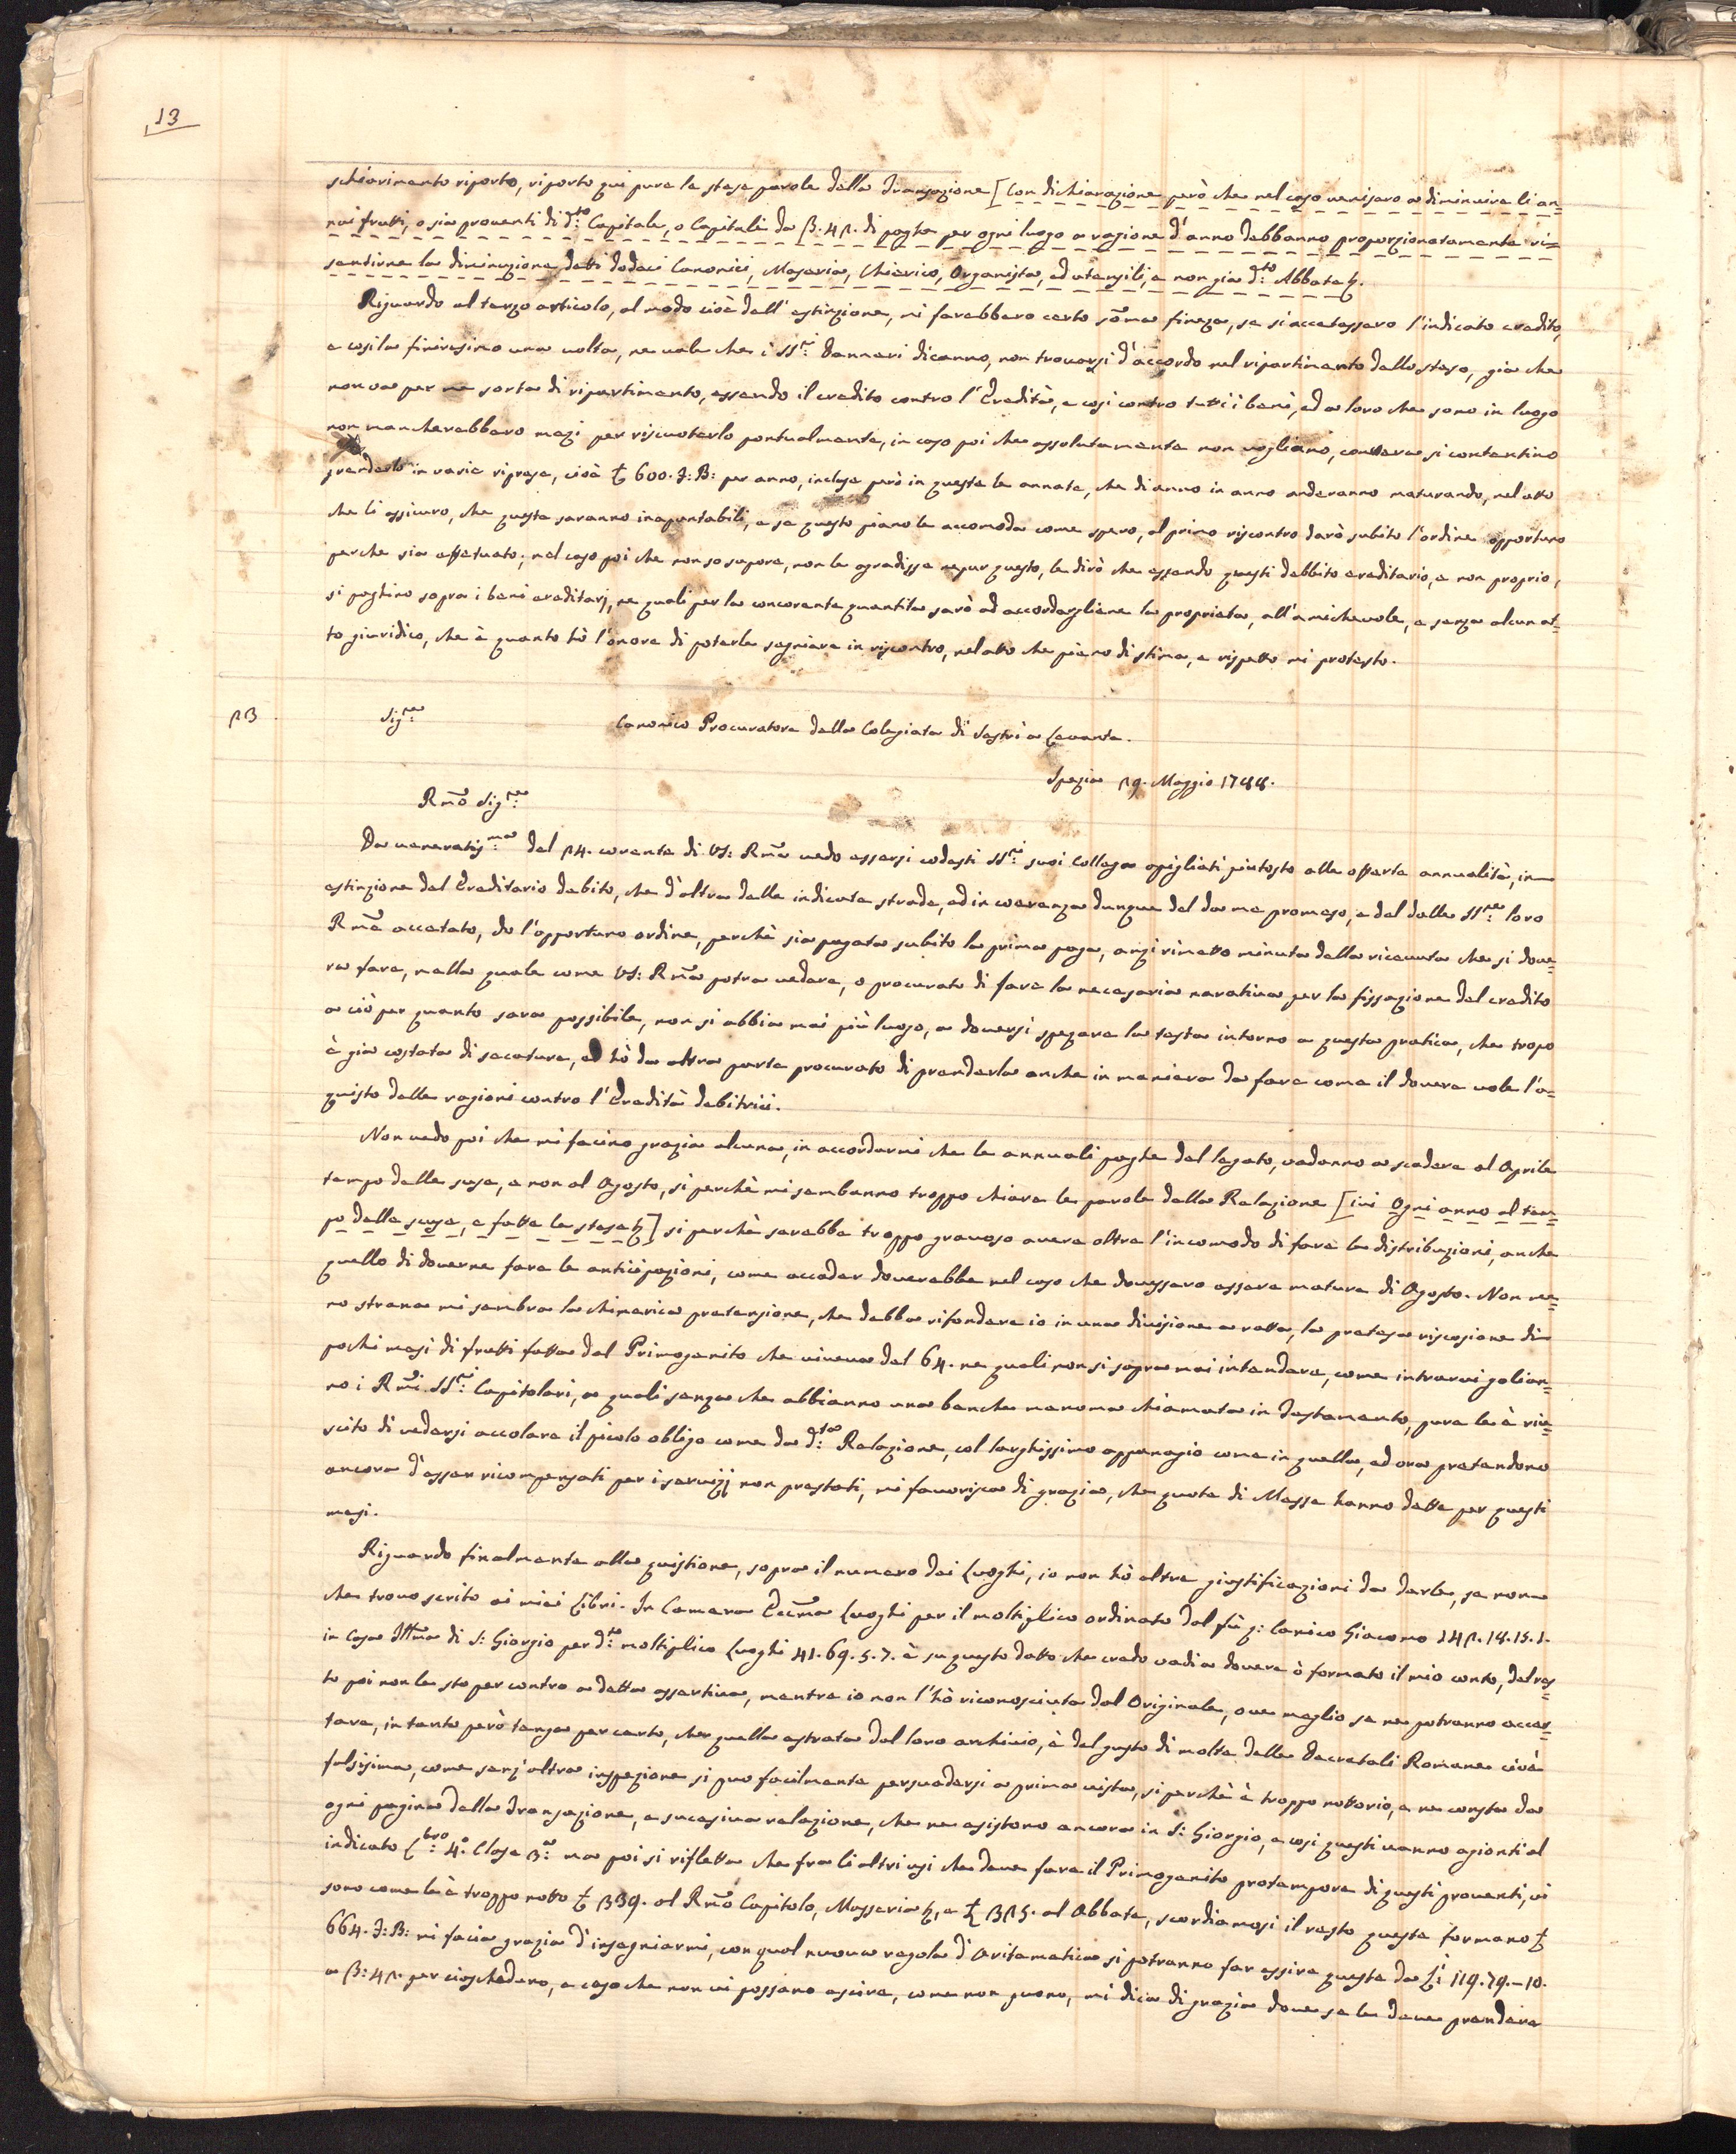 13
schiarimento riporto, riporto qui pure le stese parole della Transazione [Con dichiarazione però che nel caso venissero a diminuire li an=
nui frutti, o sia proventi di d:to Capitale, o Capitali da ß. 42. di paghe per ogni luogo a ragione d'anno debbanno proporzionatamente ri=
sentirne la diminuzione detti dodeci Canonici, Maseria, Chierico, Organista, ed utensili, e non gia d:to Abbate &.
Riguardo al terzo articolo, al modo cioè dell'estinzione, mi farebbero certo soma fineza, se si accetassero l'indicato credito,
e cosi la finirisimo una volta, ne vale che i SS:ri Vannari dicanno, non trovarsi d'accordo nel ripartimento dello steso, gia che
non va per me sorta di ripartimento, essendo il credito contro l'Eredità, e cosi contro tutti i beni, ed a loro che sono in luogo
non mancherebbero mezi per riscuoterlo pontualmente, in caso poi che assolutamente non vogliano, converrà si contentino
prenderlo in varie riprese, cioè £ 600. F: B: per anno, incluse però in queste le annate, che di anno in anno anderanno maturando, nel atto
che li assicuro, che queste saranno inapuntabili, e se questo piano le accomoda come spero, al primo riscontro darò subito l'ordine opportuno
perche sia effetuato; nel caso poi che non so sapere, non le agradisse nepur questo, le dirò che essendo questi debbito ereditario, e non proprio,
si paghino sopra i beni ereditarj, ne quali per la concorente quantita sarò ad accordargliene la proprieta, all'amichevole, e senza alcun at=
to giuridico, che è quanto hò l'onore di poterle segniare in riscontro, nel atto che pieno di stima, e rispetto mi protesto.
23 Sig:re Canonico Procuratore della Colegiata di Sestri a Levante.
Spezia 29. Maggio 1788.
Rmo Sig:re
Da veneratis:ma del 24. corente di VS: Rma vedo essersi codesti SS:ri suoi Collega apigliati piutosto alla offerta annualità, in
estinzione del Ereditario debito, che d'altra delle indicate strade, ed in coerenza dunque del da me promeso, e dal delle SS:rie loro
Rme accetato, do l'opportuno ordine, perchè sia pagata subito la prima paga, anzi rimetto minuta della ricevuta che si dove=
ra fare, nella quale come VS: Rma potra vedere, o procurato di fare la necesaria narativa per la fissazione del credito
a ciò per quanto sara possibile, non si abbia mai più luogo, a doversi spezare la testa intorno a questa pratica, che tropo
è gia costata di secature, ed hò da altra parte procurato di prenderla anche in maniera da fare come il dovere vole l'a=
quisto delle ragioni contro l'Eredità debitrici.
Non vedo poi che mi facino grazia alcuna, in accordarmi che le annuali paghe del legato, vadanno a scadere al Aprile
tempo delle scuse, e non al Agosto, si perchè mi sembanno troppo chiare le parole della Relazione [ivi Ogni anno al tem=
po delle scuse, e fatte le stese &] si perchè sarebbe troppo gravoso avere oltre l'incomodo di fare le distribuzioni, anche
quello di doverne fare le anticipazioni, come accader doverebbe nel caso che dovessero essere mature di Agosto. Non me=
no strana mi sembra la chimerica pretenzione, che debba rifondere io in una divisione a ratta, la pretesa riscosione di
pochi mesi di frutti fatta dal Primogenito che viveva del 64. ne quali non si sopra mai intendere, come intrarvi poliar=
no i Rmi SS:ri Capitolari, a quali senza che abbianno una benche menoma chiamata in Testamento, pure le è riu=
scito di vedersi accolare il picolo obligo come da d:ta Relazione, col larghissimo appanagio come in quella, ed ora pretendono
ancora d'essere ricompensati per i servizij non prestati, mi favorisca di grazia, che quote di Messe hanno dette per questi
mesi.
Riguardo finalmente alla quistione, sopra il numero dei Luoghi, io non hò altre giustificazioni da darle, se non
che trovo scrito ai miei Libri. In Camera Eccma Luoghi per il moltiplico ordinato dal fù q: Carico Giacomo 142. 18. 15. 1.
in Casa Illma di S: Giorgio per d:to moltiplico Luoghi 41. 69. 5. 7. è su questo dato che credo vadi a dovere ò formato il mio conto, del res=
to poi non le sto per contro a detta assertiva, mentre io non l'hò riconosciuta dal Originale, ove meglio se ne potranno accer=
tare, in tanto però tenga per certo, che quella estrata dal loro archivio, è del gusto di molte delle Decretali Romane cioè
falsisima, come senz'altra inspezione si puo facilmente persuadersi a prima vista, si perchè è troppo nottorio, e ne consta da
ogni pagina della Transazione, e sucesiva relazione, che ne esistono ancora in S: Giorgio, e cosi questi vanno agionti al
indicato L:bro 4.° Clase 3:a ma poi si rifletta che fra li altri usi che deve fare il Primogenito protempore di questi proventi, vi
sono come le è troppo notto £ 339. al Rmo Capitolo, Masseria &, e £ 325. al Abbate, scordiamosi il resto queste formano £
664. F: B: mi facia grazia d'insegniarmi, con qual nuova regola d'Aritematica si potranno far essire queste da L:i 119. 79. – 10.
a ß: 42. per ciascheduno, e caso che non vi possano escire, come non puono, mi dica di grazia dove se le deve prendere